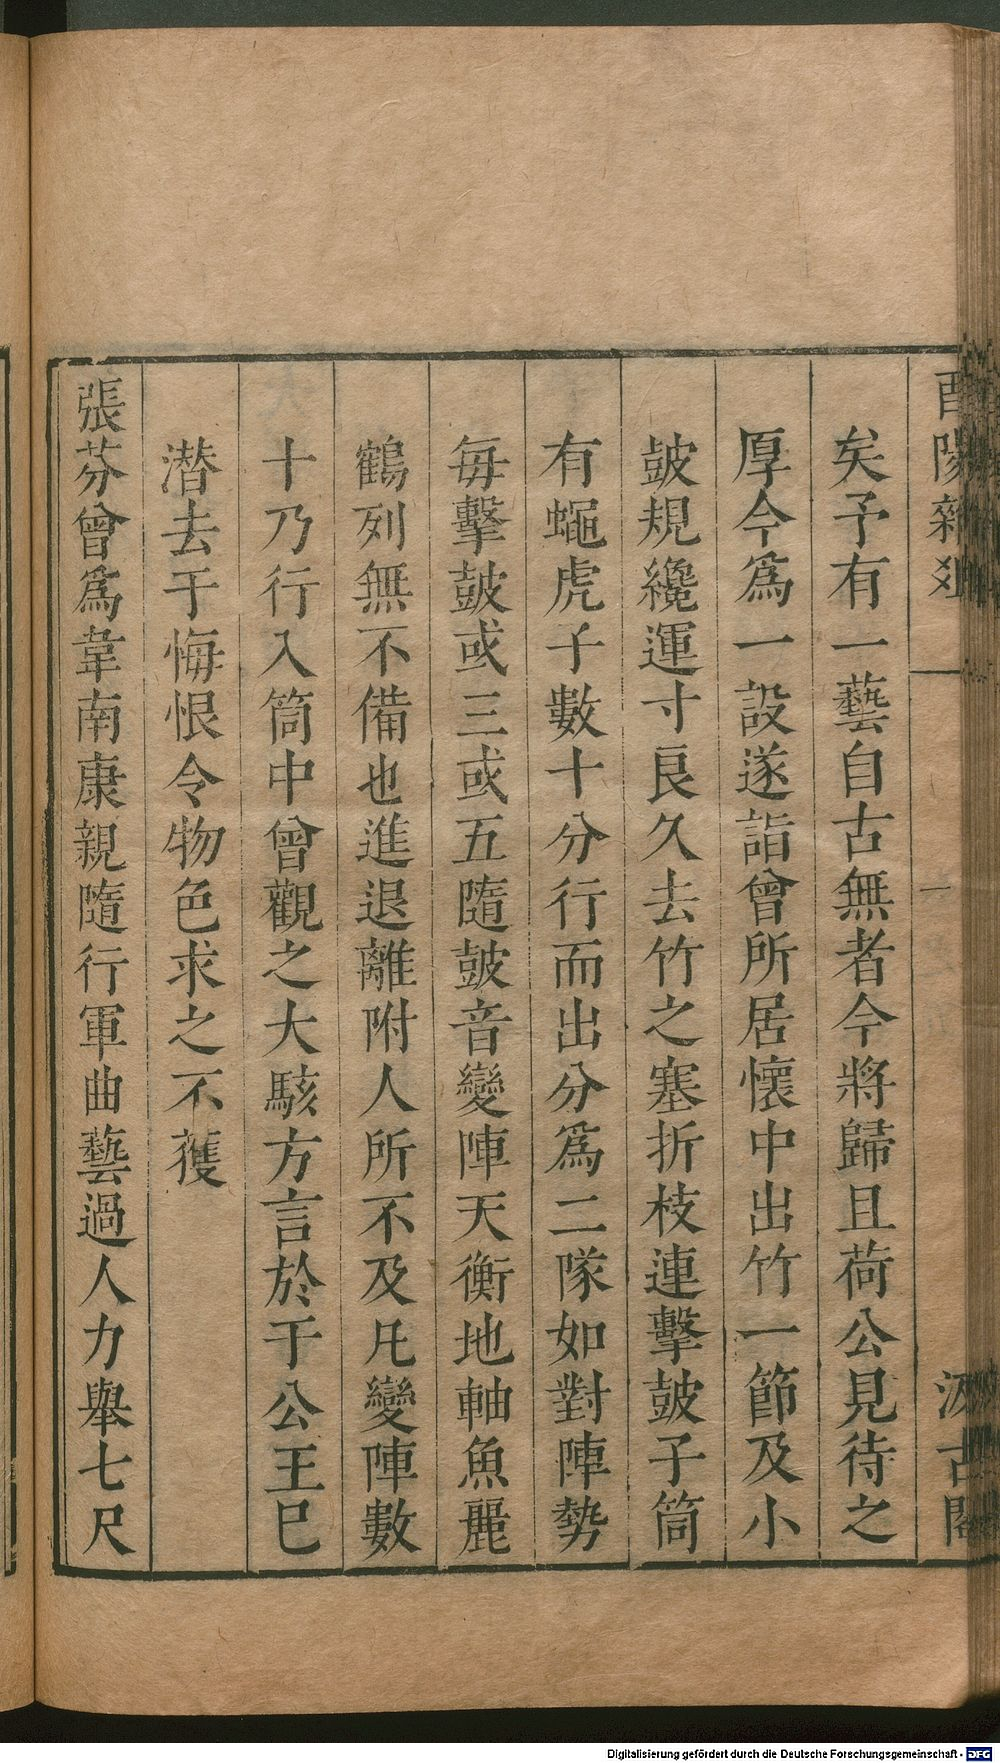 酉陽雜爼
汲古閣
矣予有一藝自古無者今將歸且荷公見待之
厚今爲一設遂詣曾所居懷中出竹一節及小
皷規纔運寸良久去竹之塞折枝連擊皷子筒
有蠅虎子數十分行而出分爲二隊如對陣勢
每擊皷或三或五隨皷音變陣天衡地軸魚麗
鶴列無不備也進退離附人所不及凡變陣數
十乃行入筒中曾觀之大駭方言於于公王已
潜去于悔恨令物色求之不獲
張芬曾爲韋南康親隨行軍曲藝過人力舉七尺
Digitalisierung gefördert durch die Deutsche Forschungsgemeinschaft - DFG